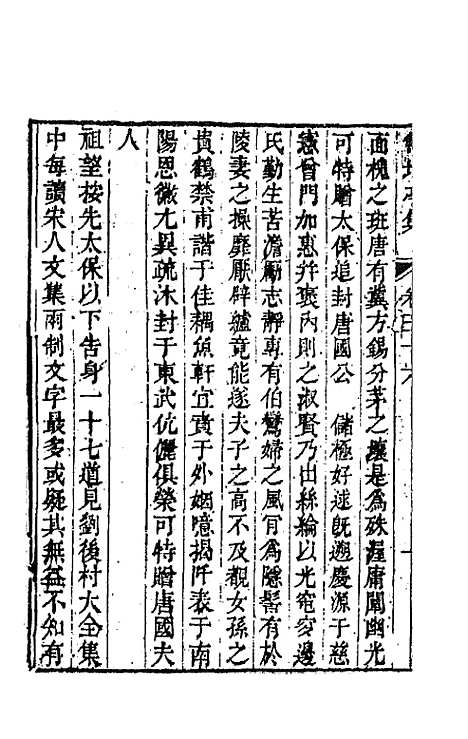 面槐之班唐有冀方錫分茅之壤是為殊渥庸闡幽光
可特贈太保追封唐國公　儲極好逑既遡慶源于慈
憲曾門加惠并褒內則之淑賢乃出絲綸以光窀穸邊
氏勤生苦澹勵志靜專有伯鸞婦之風肎為隱髻有於
陵妻之操靡厭辟纑竟能遂夫子之高不及觀女孫之
貴鶴禁甫諧于佳耦魚軒宜賁于外姻噫揭阡表于南
陽恩徽尤異疏沐封于東武伉儷俱榮可特贈唐國夫
人
祖望按先太保以下告身一十七道見劉後村大全集
中每讀宋人文集兩制文字最多或疑其無益不知有